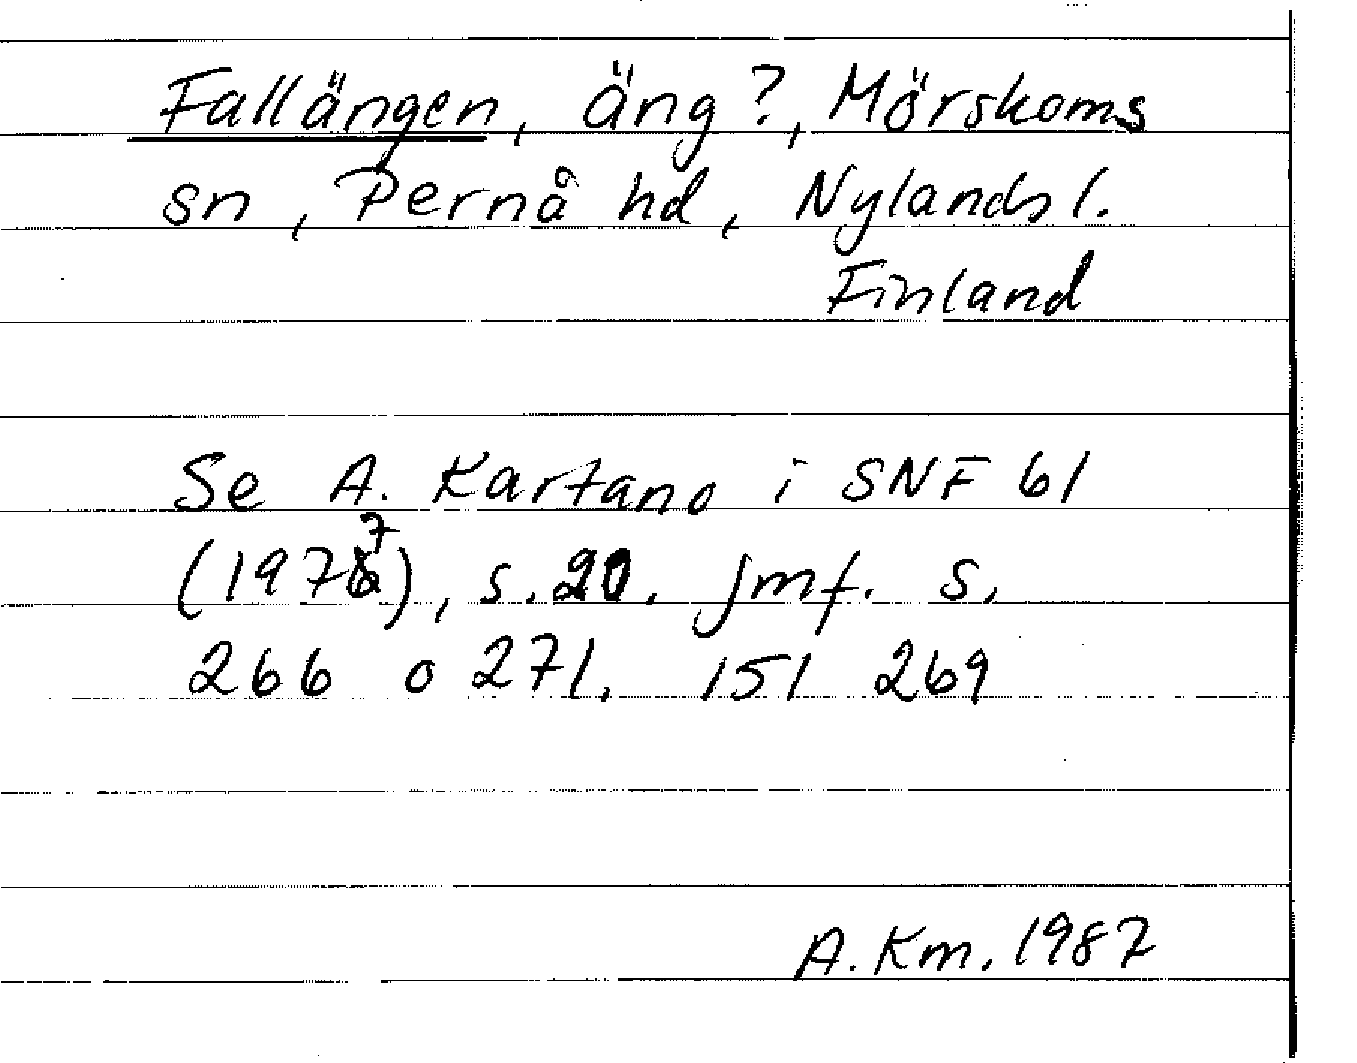 Fallängen, äng?, Mörskoms
sn, Pernå hd, Nylands l.
Finland
Se A. Kartano i SNF 61
(1977), s. 20. Jmf. s.
266 o 271, 151 269
A. Km. 1987